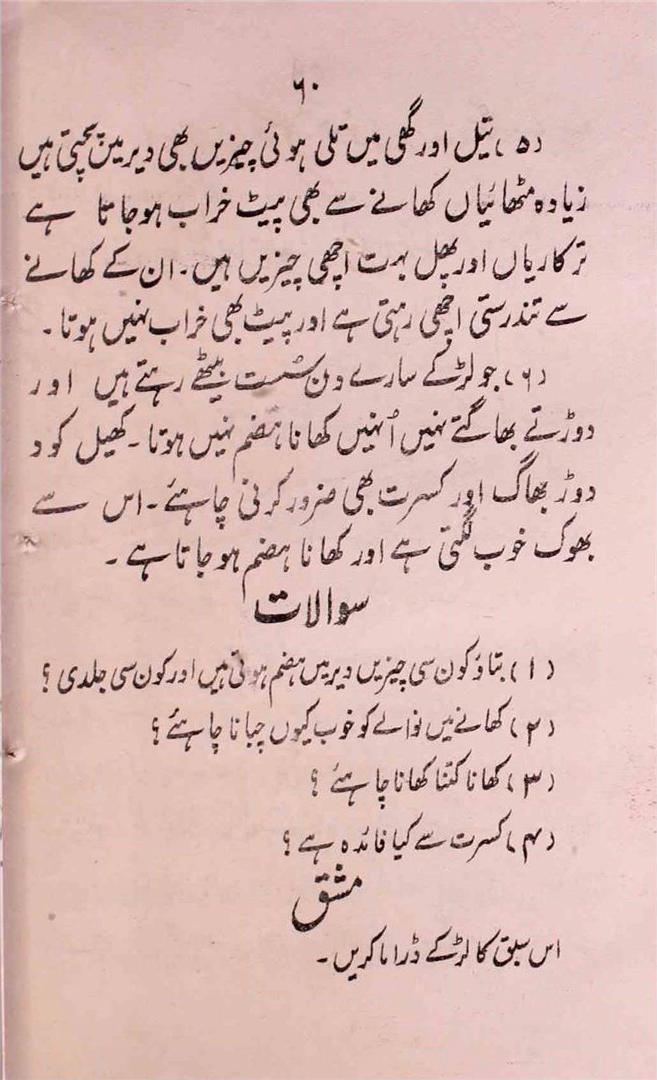 ۶۰
(۵) تیل اور گھی میں تلی ہوئی چیزیں بھی دیر میں پچتی ہیں
زیادہ مٹھائیاں کھانے سے بھی پیٹ خراب ہوجاتا ہے
ترکاریاں اور پھل بہت اچھی چیزیں ہیں۔ ان کے کھانے
سے تندرستی اچھی رہتی ہے اور پیٹ بھی خراب نہیں ہوتا۔
(۶) جو لڑکے سارے دن سُست بیٹھے رہتے ہیں اور
دوڑتے بھاگتے نہیں اُنہیں کھانا ہضم نہیں ہوتا۔ کھیل کود
دوڑ بھاگ اور کسرت بھی ضرور کرنی چاہئے۔ اس سے
بھوک خوب لگتی ہے اور کھانا ہضم ہوجاتا ہے۔
سوالات
(۱) بتاؤ کون سی چیزیں دیر میں ہضم ہوتی ہیں اور کون سی جلدی؟
(۲) کھانے میں نوالے کو خوب کیوں چبانا چاہئے؟
(۳) کھانا کتنا کھانا چاہئے؟
(۴) کسرت سے کیا فائدہ ہے؟
مشق
اس سبق کا لڑکے ڈراما کریں۔